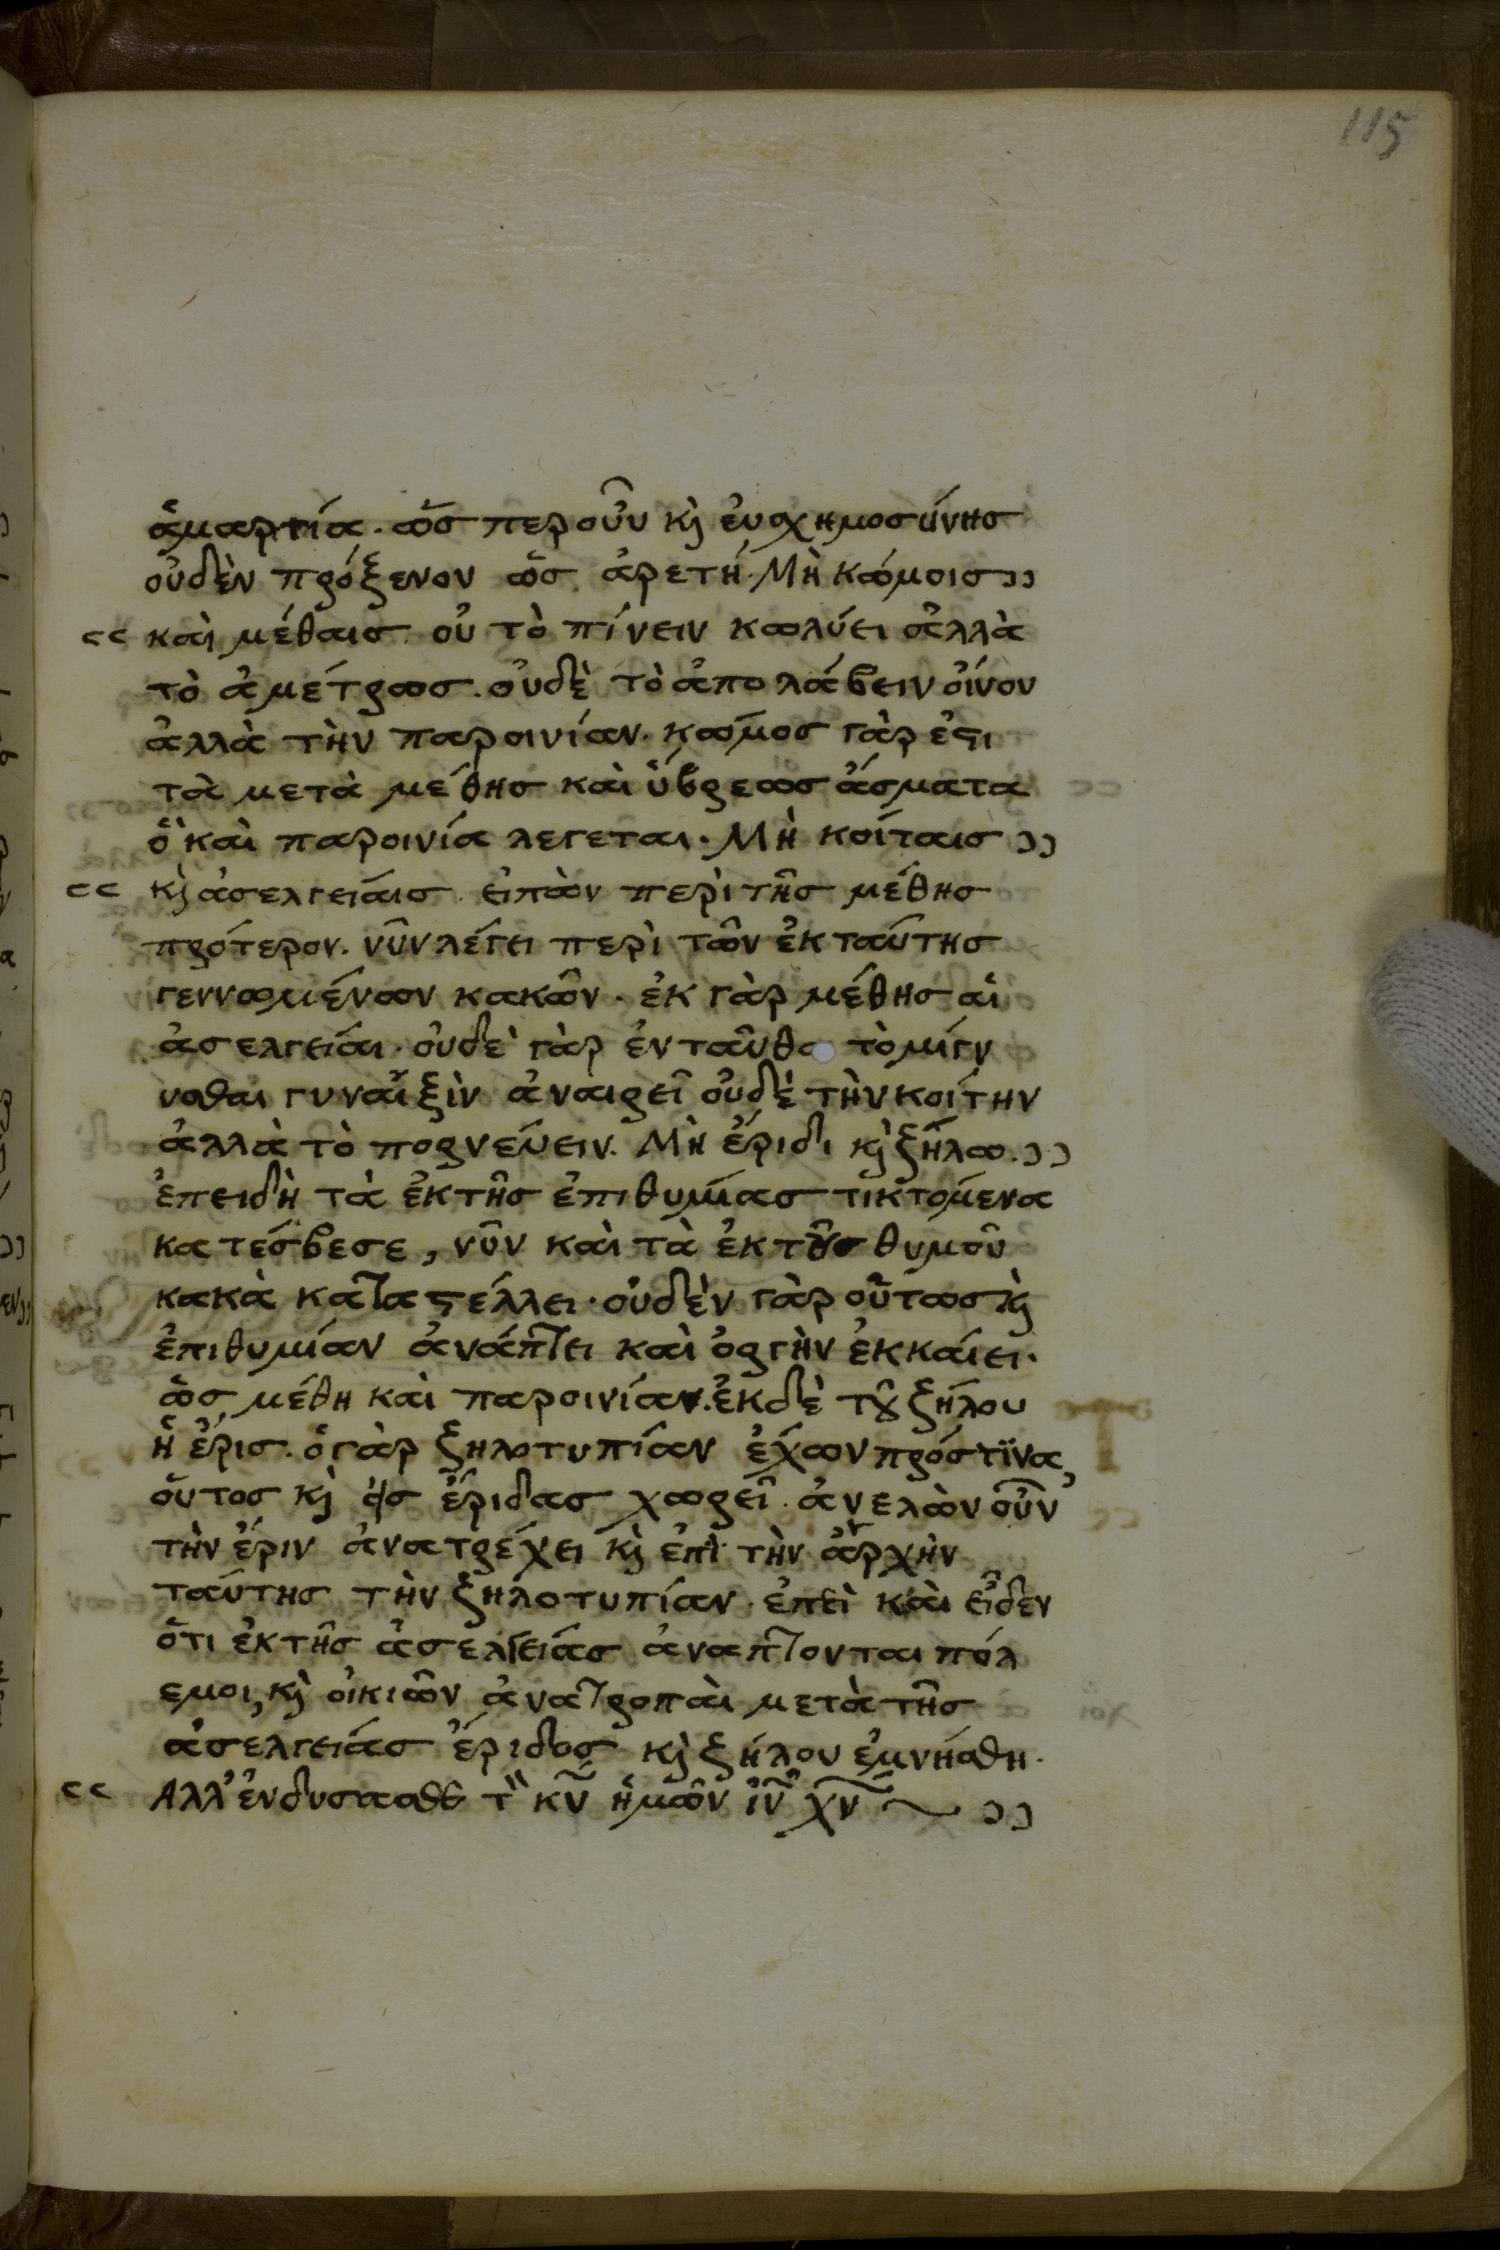 115
ἁμαρτία. ὥσπερ οὖν κ̀ ἐυσχημοσύνησ
οὐδὲν πρόξενον ὡσ ἀρετή. Μὴ κώμοισ ››
‹‹ καὶ μέθαισ. οὐ τὸ πίνειν κωλύει ἀλλὰ
τὸ ἀμέτρωσ. οὐδὲ τὸ ἀπολάβειν οἴνου
ἀλλὰ τὴν παροινίαν. κώμοσ γὰρ ἐϛι
τὰ μετὰ μέθησ καὶ ὕβρεωσ ἄσματα
ὃ καὶ παροινία λεγεται. Μὴ κοίταισ ››
‹‹ κ̀ ἀσελγείαισ. εἰπὼν περὶ τῆσ μέθησ
πρότερον. νῦν λέγει περὶ τῶν ἐκ ταύτησ
γεννωμένων κακῶν. ἐκ γὰρ μέθησ αἱ
ἀσελγείαι. οὐδὲ γὰρ ἐνταῦθα τὸ μίγν
υσθαι γυναἶξὶν ἀναιρεῖ οὐδὲ τὴν κοίτην
ἀλλὰ τὸ πορνεύειν. Μὴ ἔριδι κ̀ ζήλω. ››
ἐπειδὴ τὰ ἐκ τῆσ ἐπιθυμίασ τικτόμενα
κατέσβεσε, νῦν καὶ τὰ ἐκ τοῦ θυμοῦ
κακὰ καταϛέλλει. οὐδὲν γὰρ οὕτωσ κ̀
ἐπιθυμίαν ἀνάπτει καὶ ὀργὴν ἐκκαίει.
ὡσ μέθη καὶ παροινίαν. ἐκ δὲ τȣ̃ ζήλου
ἡ ἔρισ. ὁ γὰρ ζηλοτυπίαν ἐχων πρόσ τϊνα,
οὕτοσ κ̀ εἰσ ἔριδασ χωρεῖ. ἀνελὼν οὖν
τὴν ἔριν ἀνατρέχει κ̀ ἐπὶ τὴν ἀρχὴν
ταύτησ τὴν ζηλοτυπίαν. ἐπεὶ καὶ εἶδεν
ὅτι ἐκ τῆσ ἀσελγείασ ἀναπτονται πόλ
εμοι, κ̀ οἰκιῶν ἀνατροπὰι μετὰ τῆσ
ἀσελγείασ ἔριδοσ κ̀ ζήλου ἐμνήσθη.
‹‹ Αλλ' ἐνδυσασθε τ̀ κν̃ ἡμῶν ἰν̃ χν̃ ››